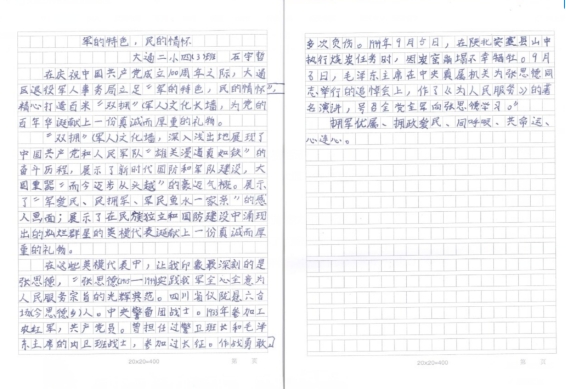 军的特色，民的情怀
大通二小四(3)班 石宇哲
在庆祝中国共产党成立100周年之际，大通
区退役军人事务局立足“军的特色，民的情怀”，
精心打造百米“双拥”(军人)文化长墙，为党的
百年华诞献上一份真诚而厚重的礼物。
“双拥”(军人)文化墙，深入浅出地展现了
中国共产党和人民军队“雄关漫道真如铁”的
奋斗历程，展示了新时代国防和军队建设，大
国重器“而今迈步从头越”的豪迈气概。展示
了“军爱民、民拥军、军民鱼水一家亲”的感
人画面；展示了在民族独立和国防建设中涌现
出的灿烂群星的英模代表诞献上一份真诚而厚
重的礼物。
在这些英模代表中，让我印象最深刻的是
张思德，“张思德1915—1944实践我军全心全意为
人民服务宗旨的光辉典范。四川省仪陇县六合
场(今思德乡)人。中央警备团战士。1933年参加工
农红军，共产党员。曾担任过警卫班长和毛泽
东主席的内卫班战士，参加过长征。作战勇敢，
20×20=400
第 页
多次负伤。1944年9月5日，在陕北安塞县山中
执行烧炭任务时，因炭窑崩塌不幸牺牲。9月
8日，毛泽东主席在中央直属机关为张思德同
志举行的追悼会上，作了《为人民服务》的著
名演讲，号召全党全军向张思德学习。”
拥军优属、拥政爱民、同呼吸、共命运、
心连心。
20×20=400
第 页